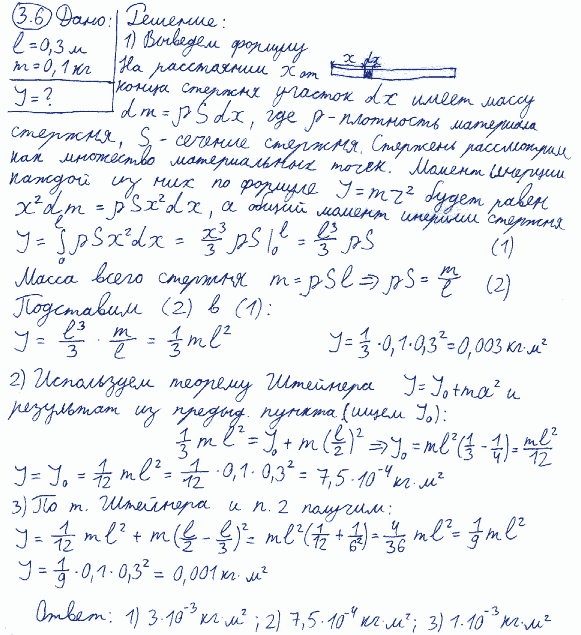 3.6 Дано: Решение:
l = 0,3 м
m = 0,1 кг
J = ?
1) Выведем формулу
x dx
На расстоянии x от
конца стержня участок dx имеет массу
dm = ρSdx, где ρ - плотность материала
стержня, S - сечение стержня. Стержень рассмотрим
как множество материальных точек. Момент инерции
каждой из них по формуле J = mr² будет равен
x²dm = ρSx²dx, а общий момент инерции стержня
J = ∫₀ˡ ρSx²dx = x³/3 ρS|₀ˡ = l³/3 ρS (1)
Масса всего стержня m = ρSl ⇒ ρS = m/l (2)
Подставим (2) в (1):
J = l³/3 · m/l = 1/3 ml² J = 1/3 · 0,1 · 0,3² = 0,003 кг·м²
2) Используем теорему Штейнера J = J₀ + ma² и
результат из предыд. пункта (ищем J₀):
1/3 ml² = J₀ + m(l/2)² ⇒ J₀ = ml²(1/3 - 1/4) = ml²/12
J = J₀ = 1/12 ml² = 1/12 · 0,1 · 0,3² = 7,5 · 10⁻⁴ кг·м²
3) По т. Штейнера и п. 2 получим:
J = 1/12 ml² + m(l/2 - l/3)² = ml²(1/12 + 1/6²) = 4/36 ml² = 1/9 ml²
J = 1/9 · 0,1 · 0,3² = 0,001 кг·м²
Ответ: 1) 3·10⁻³ кг·м²; 2) 7,5·10⁻⁴ кг·м²; 3) 1·10⁻³ кг·м²